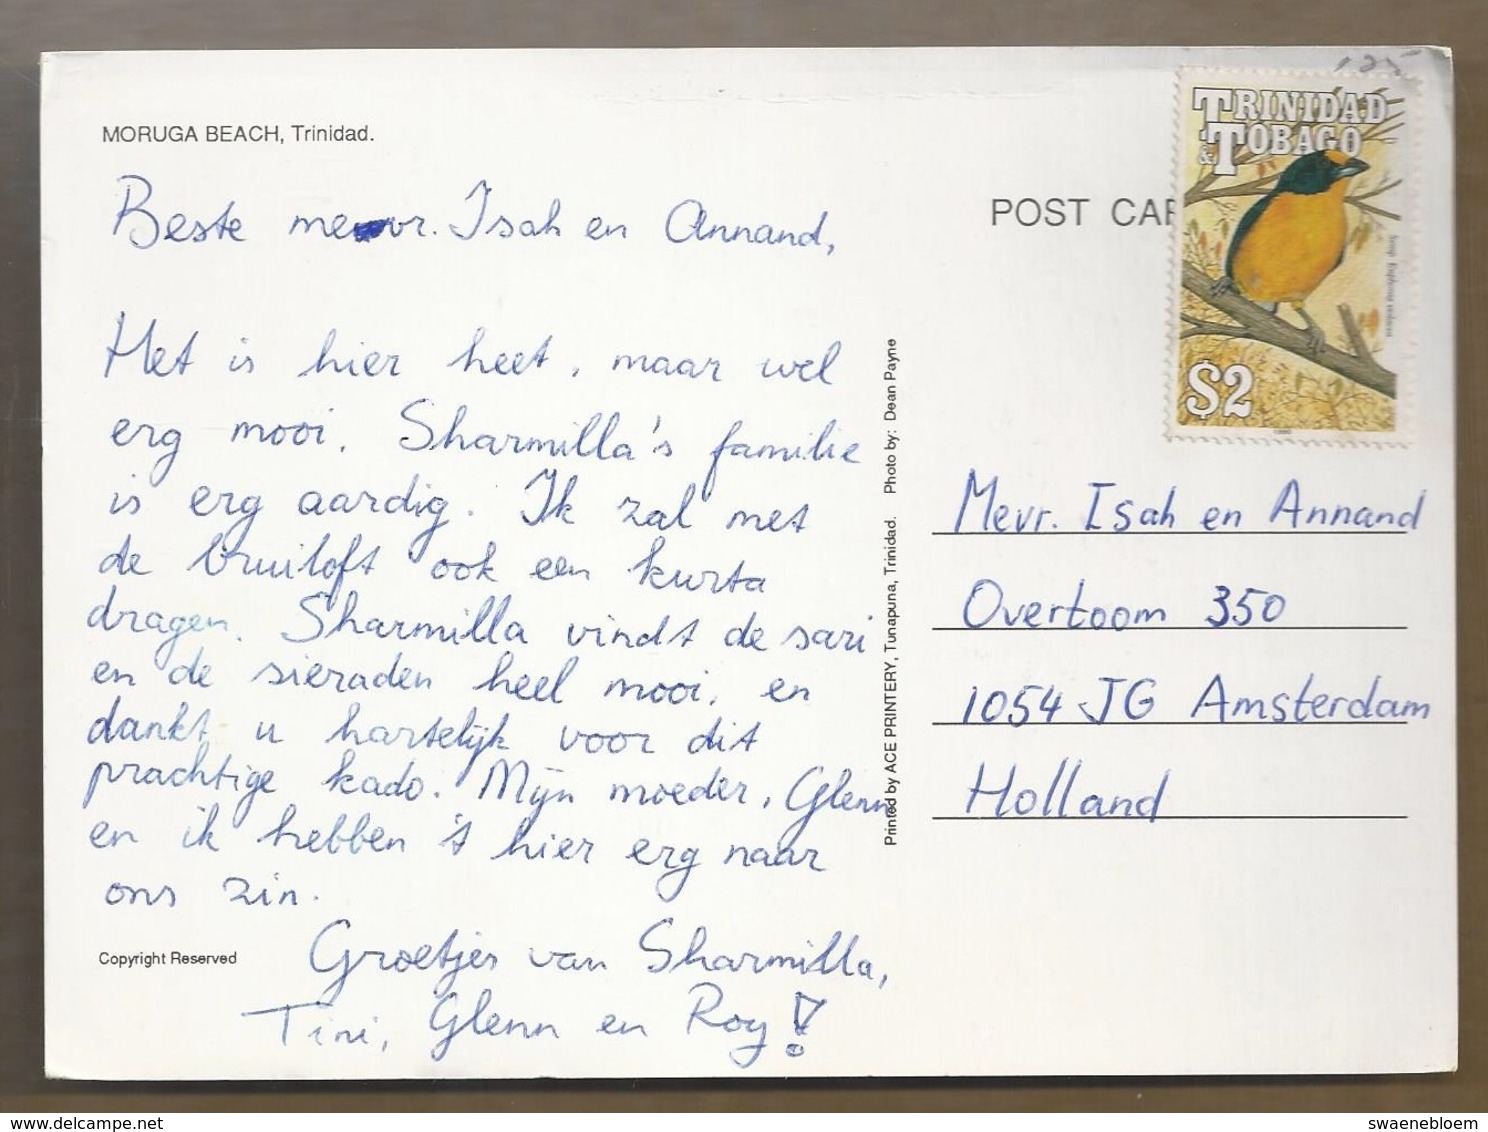 MORUGA BEACH, Trinidad.
Beste mevr. Isah en Annand,
Het is hier heet, maar wel
erg mooi. Sharmilla's familie
is erg aardig. Ik zal met
de bruiloft ook een kurta
dragen. Sharmilla vindt de sari
en de sieraden heel mooi, en
dankt u hartelijk voor dit
prachtige kado. Mijn moeder, Glenn
en ik hebben 't hier erg naar
ons zin.
Groetjes van Sharmilla,
Tini, Glenn en Roy!
Copyright Reserved
Printed by ACE PRINTERY, Tunapuna, Trinidad. Photo by: Dean Payne
POST CAR
TRINIDAD
& TOBAGO
$2
1990
Mevr. Isah en Annand
Overtoom 350
1054 JG Amsterdam
Holland
www.delcampe.net
swaenebloem